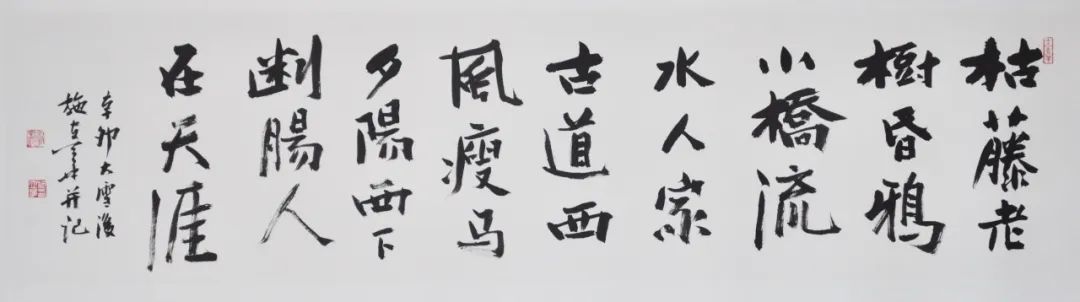 枯藤老
樹昏鴉
小橋流
水人家
古道西
風瘦马
夕陽西下
断腸人
在天涯
辛卯大雪後
施并记